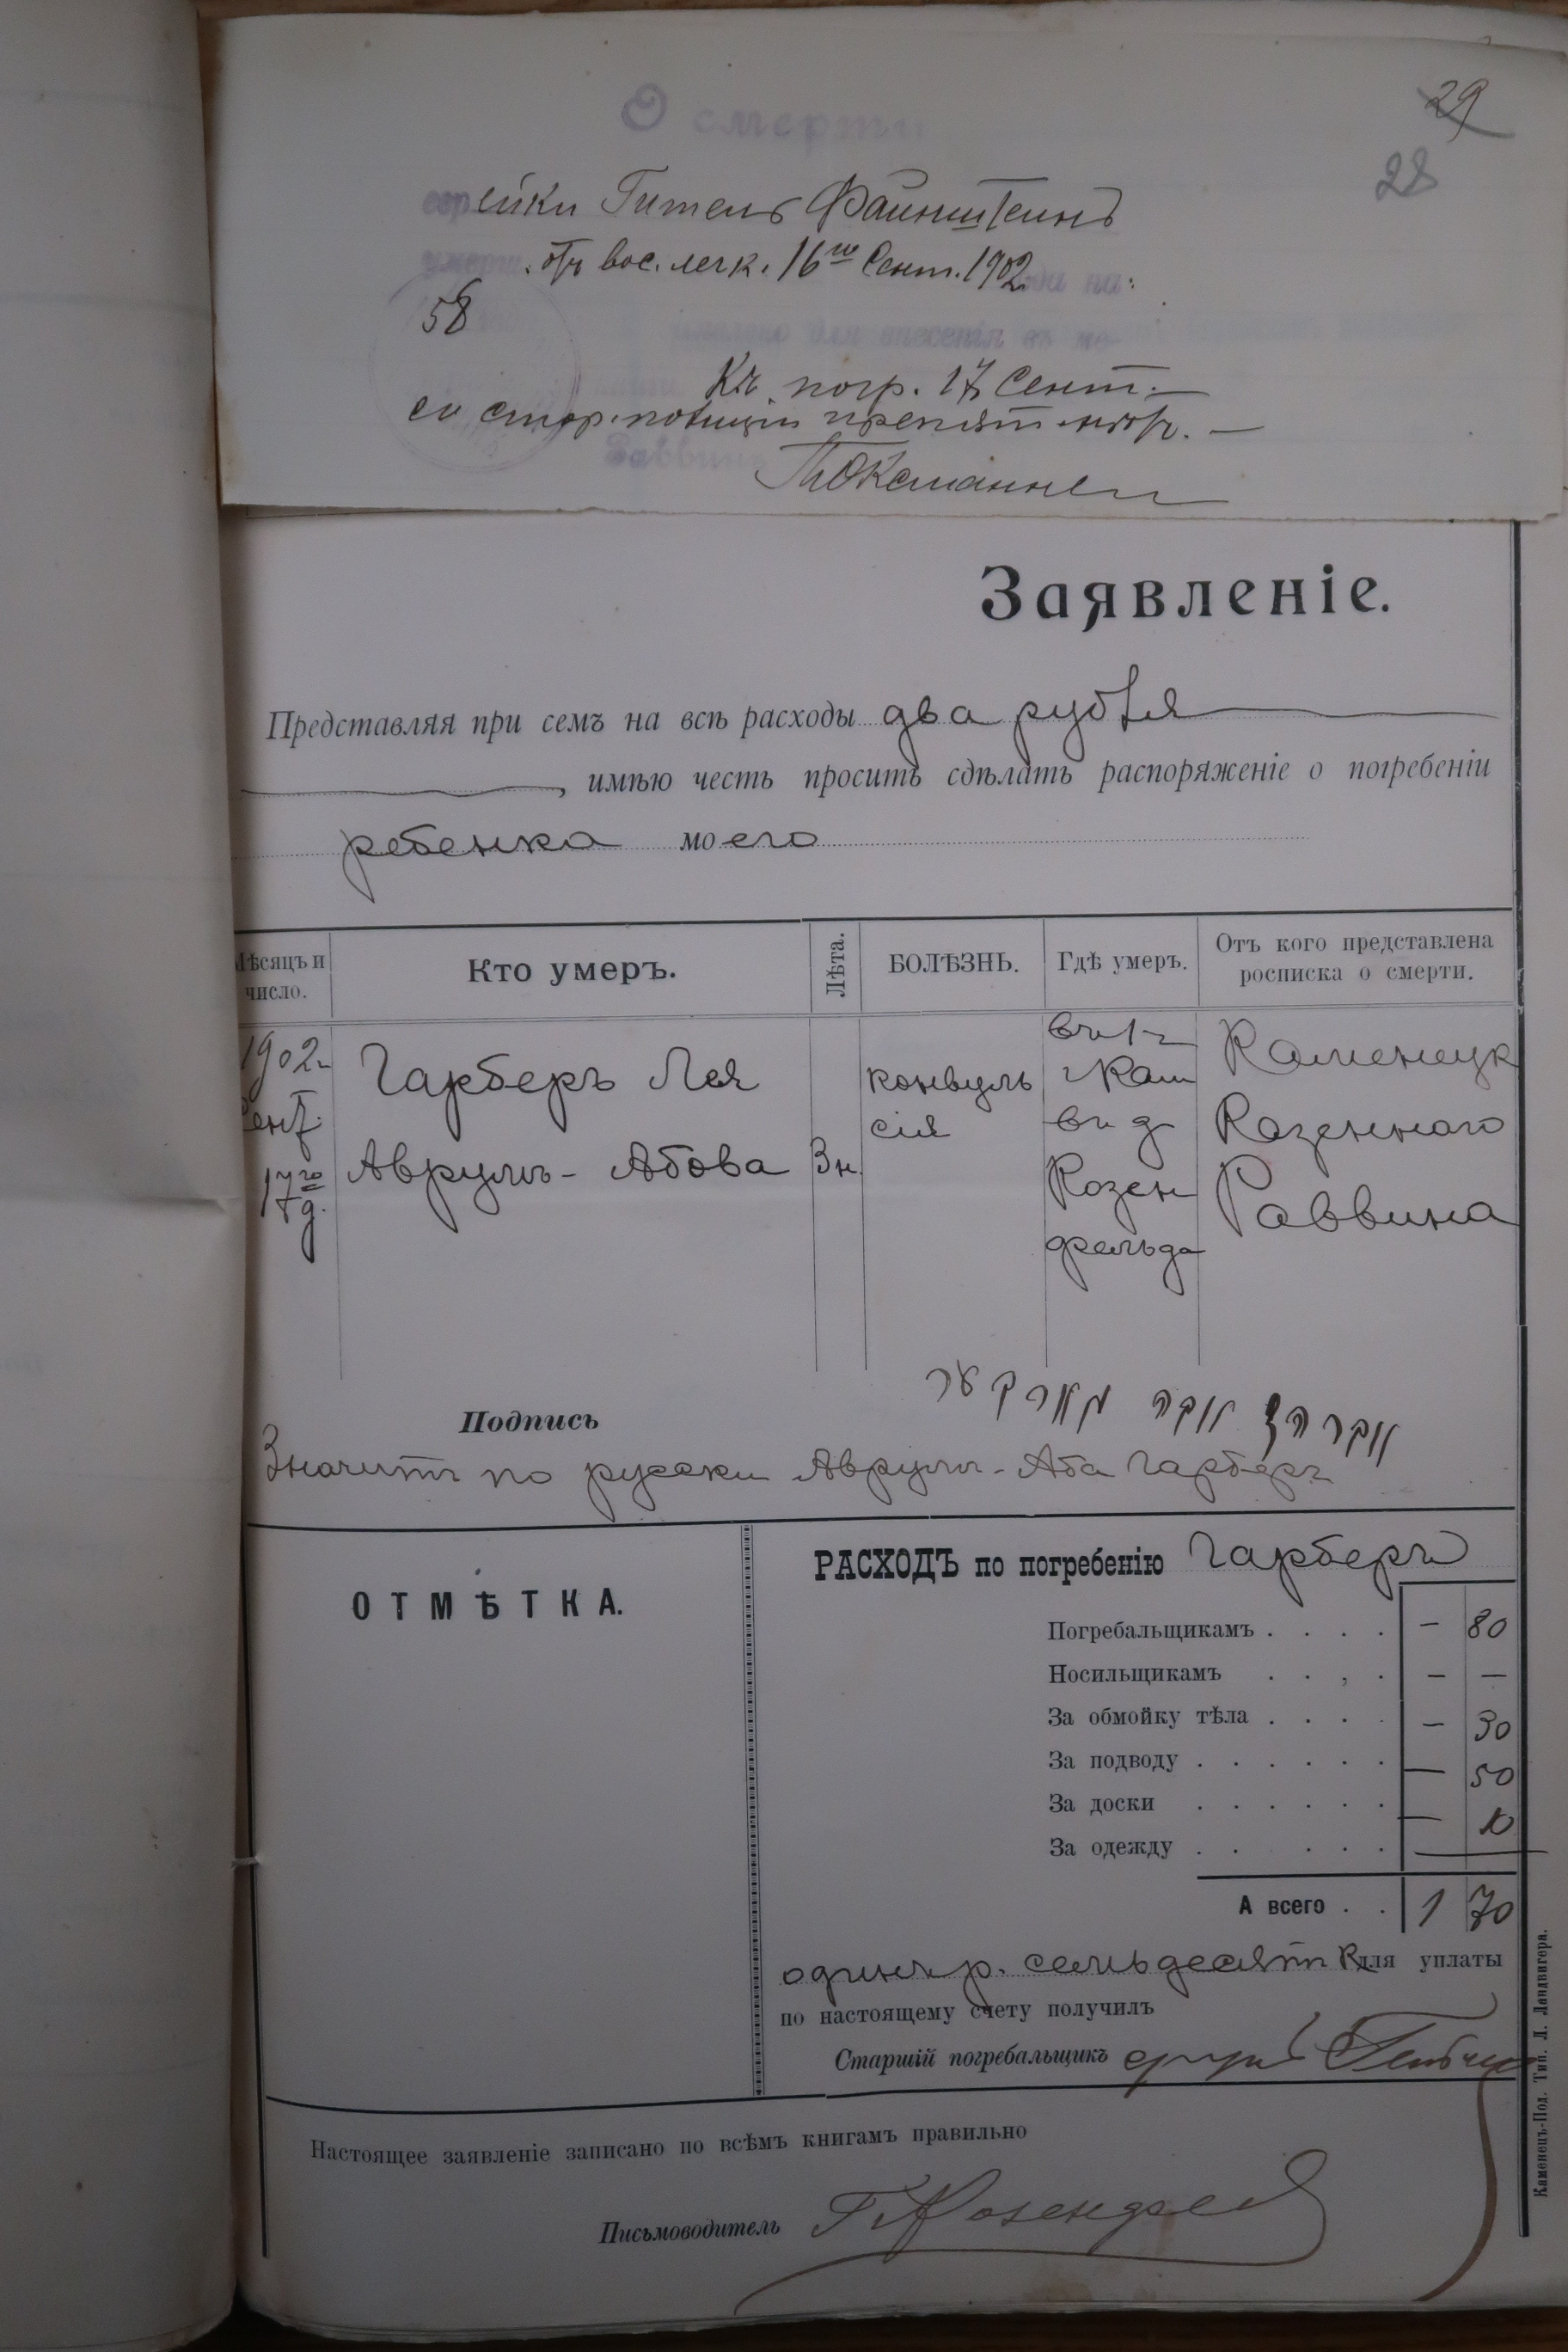 29
28
О смерти
еврейки Гитель Файнштейнъ
умерш. отъ вос. легк. 16го Сент. 1902
58
Къ погр. 17 Сент.
со стор. полиціи препят. нѣтъ.
Заявленіе.
Представляя при семъ на всѣ расходы два рубля
, имѣю честь просить сдѣлать распоряженіе о погребеніи
ребенка моего
Мѣсяцъ и число.
Кто умеръ.
Лѣта.
БОЛѢЗНЬ.
Гдѣ умеръ.
Отъ кого представлена росписка о смерти.
1902г
Сент.
17го д.
Гарберъ Лея
Аврумъ-Абова
3 н.
конвуль
сія
въ 1 ч
г Кам
въ д
Розен
фельда
Каменецк
Казеннаго
Раввина
אברהם אבה גארבער
Подпись
Значитъ по русски Аврумъ-Аба Гарберъ
ОТМѢТКА.
РАСХОДЪ по погребенію Гарберъ
Погребальщикамъ . . . . — 80
Носильщикамъ . . , . — —
За обмойку тѣла . . . . — 30
За подводу . . . . . . — 50
За доски . . . . . . — 10
За одежду . . . . . .
А всего . . 1 70
одинъ р. семьдесятъ к для уплаты
по настоящему счету получилъ
Старшій погребальщикъ
Настоящее заявленіе записано по всѣмъ книгамъ правильно
Письмоводитель Г Розенфел
Каменецъ-Под. Тип. Л. Ландвигера.